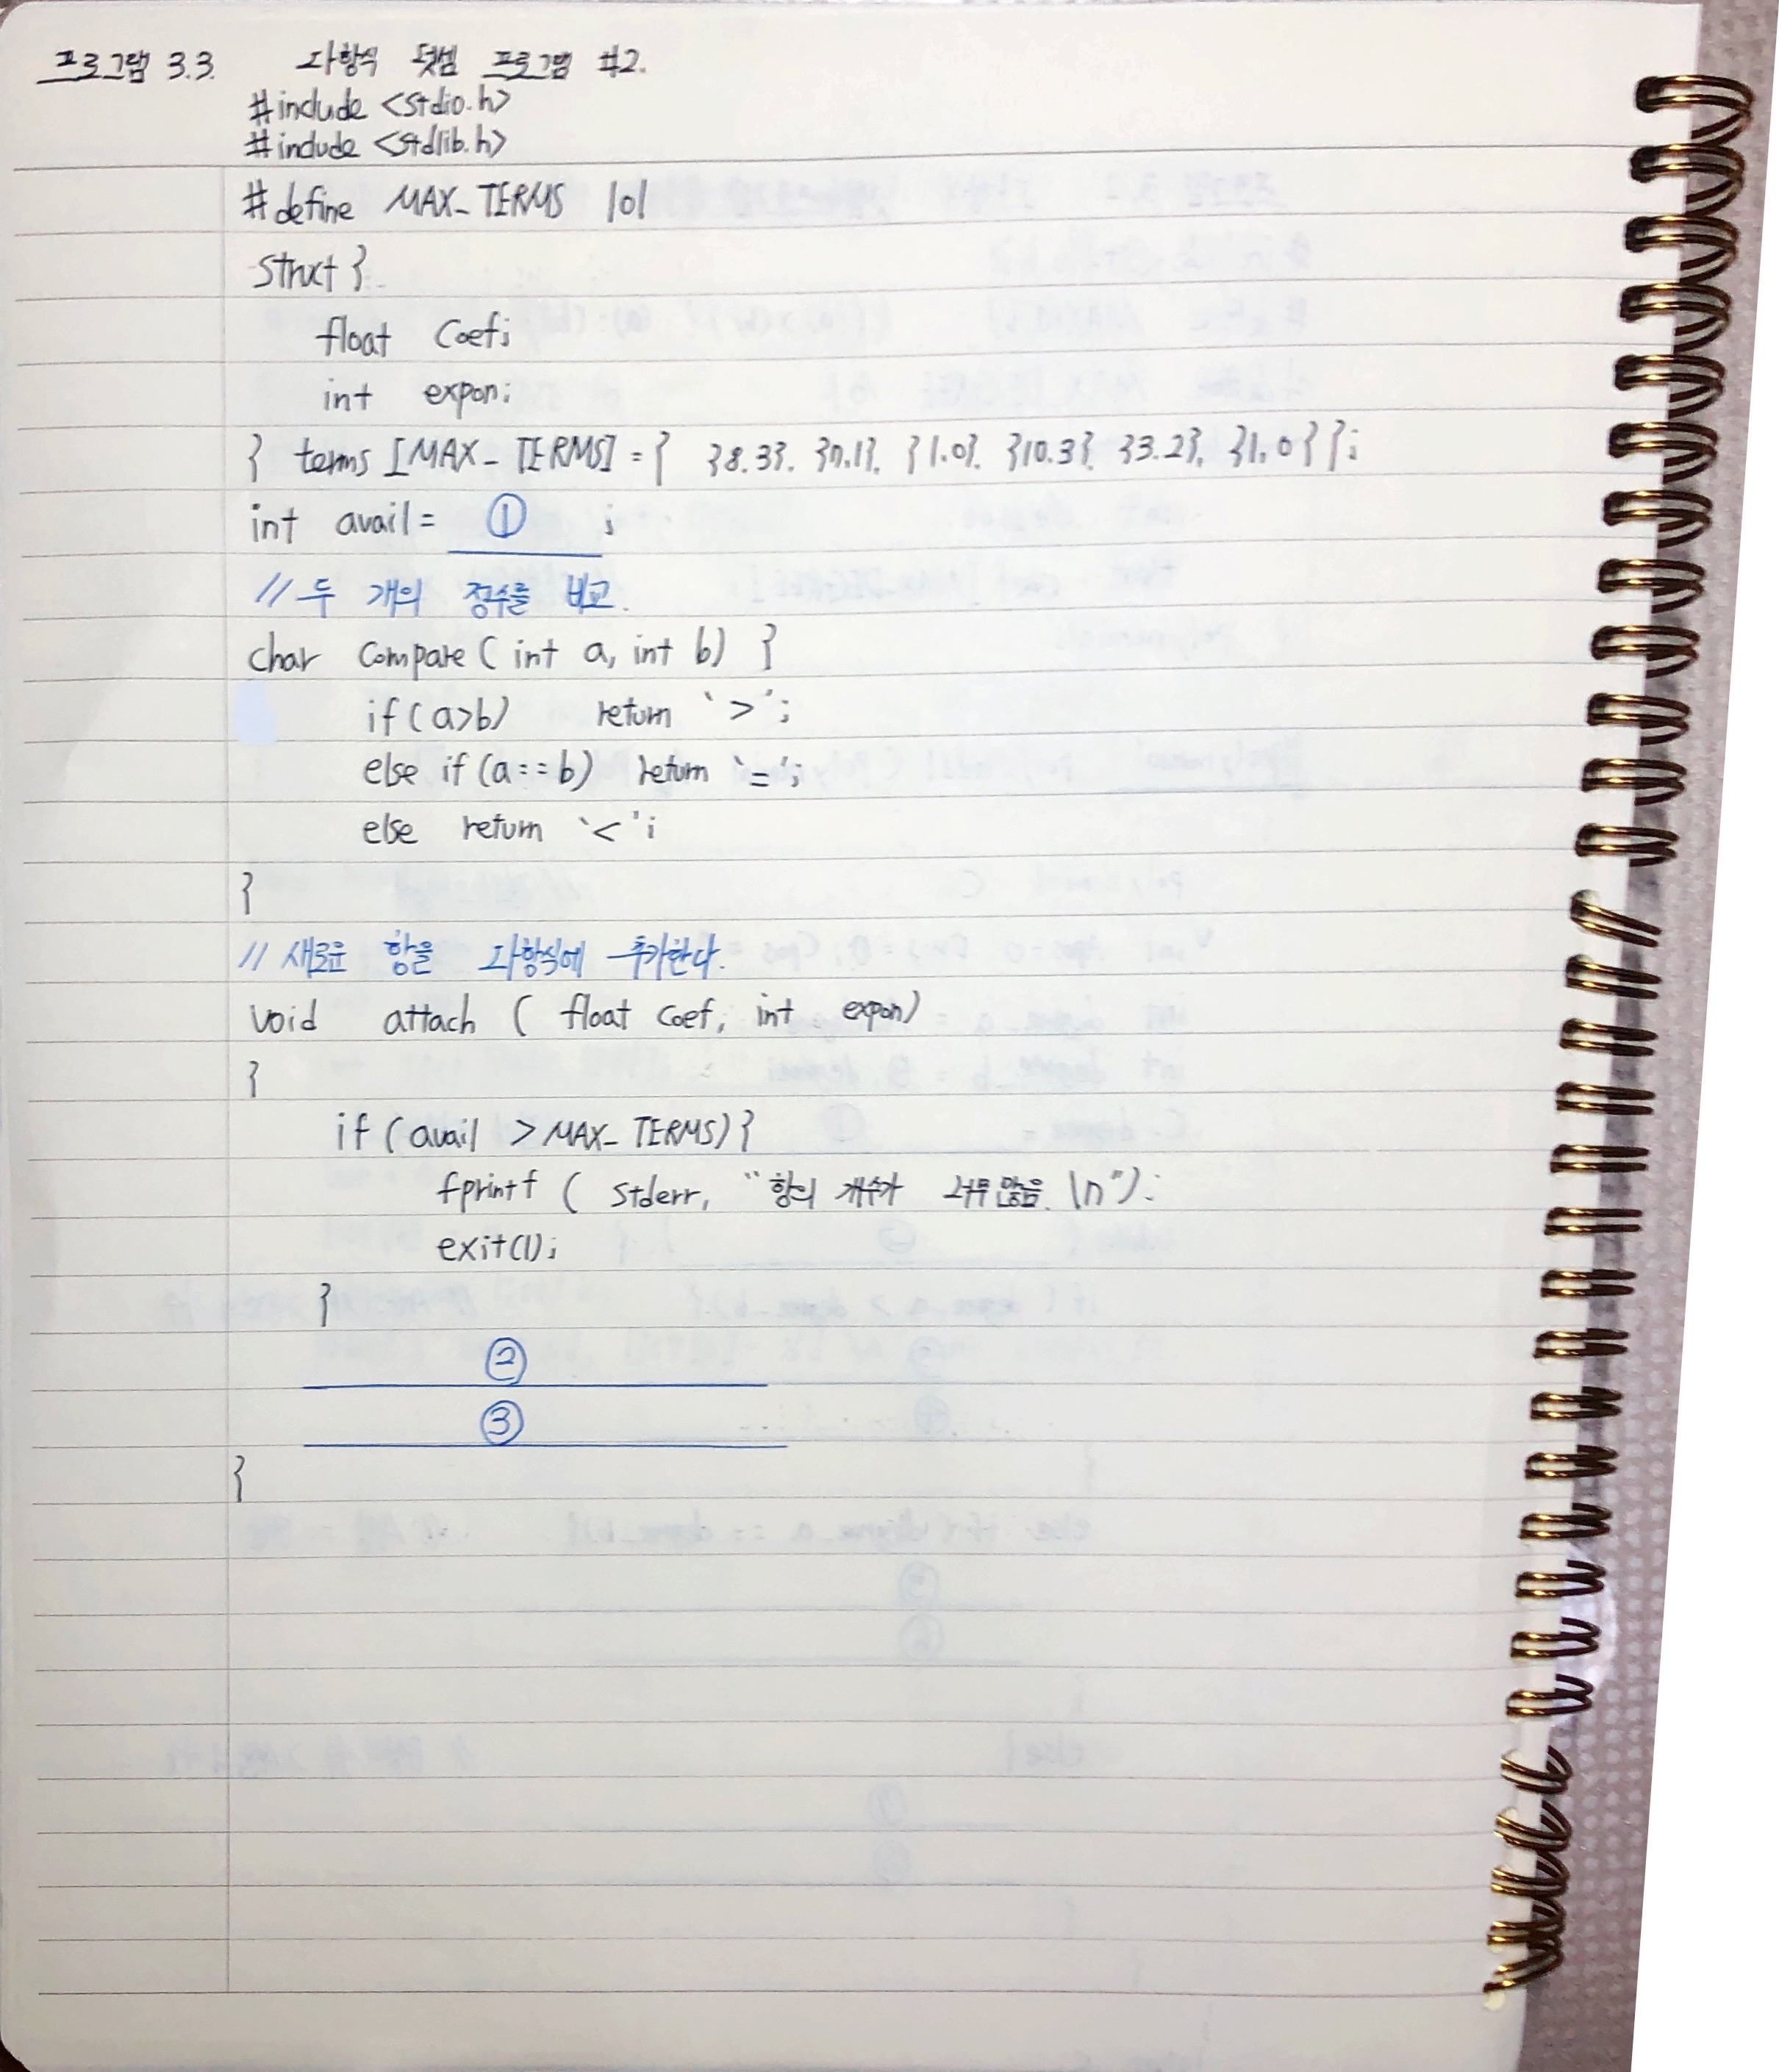 프로그램 3.3. 다항식 덧셈 프로그램 #2.
#include <stdio.h>
#include <stdlib.h>
#define MAX_TERMS 101
struct }
float coef;
int expon;
} terms [MAX_TERMS] = { }8.3}. }7.1}. }1.0}. }10.3}. }3.2}. }1.0}};
int avail = ① ;
// 두 개의 정수를 비교.
char compare ( int a, int b) }
if (a>b) return '>';
else if (a==b) return '=';
else return '<';
}
// 새로운 항을 다항식에 추가한다.
void attach ( float coef, int expon)
}
if (avail > MAX_TERMS) }
fprintf ( stderr, "항의 개수가 너무 많음. \n");
exit(1);
}
②
③
}